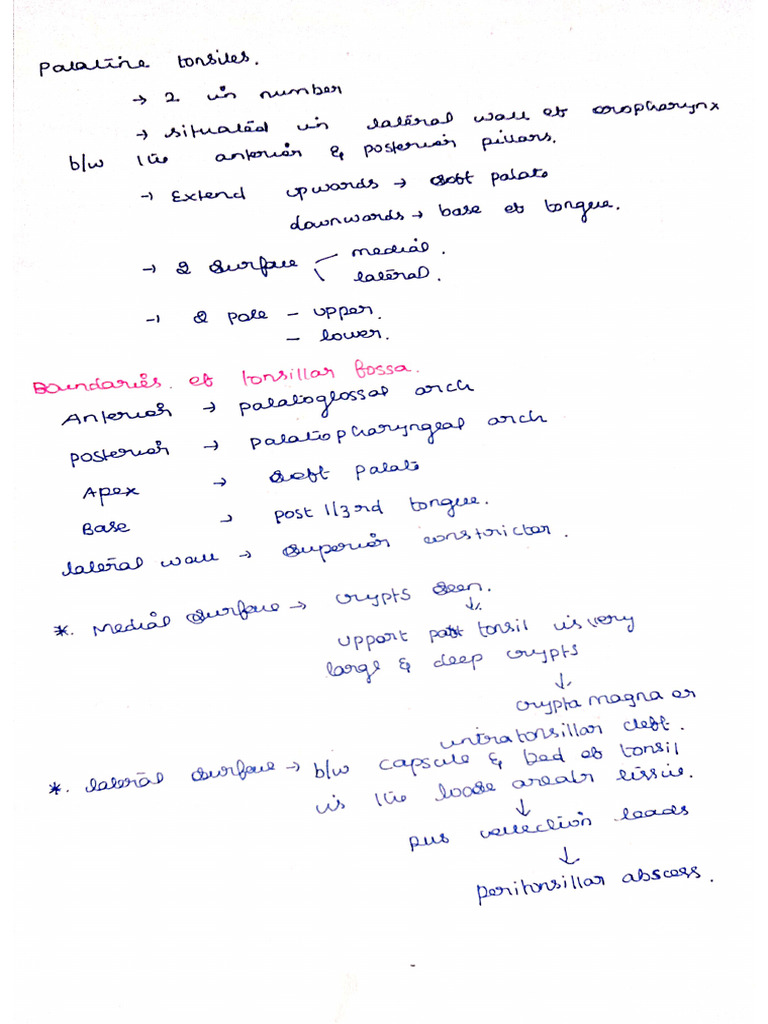 Palatine tonsiles.
→ 2 in number
→ situated in lateral wall of oropharynx
b/w the anterior & posterior pillars.
→ Extend upwards → soft palate
downwards → base of tongue.
→ 2 surface - medial.
lateral.
→ 2 pole - upper.
- lower.
Boundaries. of tonsillar fossa.
Anterior → palatoglossal arch
posterior → palatopharyngeal arch
Apex → soft palate
Base → post 1/3rd tongue.
lateral wall → superior constrictor.
*. Medial surface → crypts seen.
↓
uppart part tonsil is very
large & deep crypts
↓
crypta magna or
intratonsillar cleft.
*. lateral surface → b/w capsule & bed of tonsil
is the loose areolr tissue.
↓
pus collection leads
↓
peritonsillar abscess.